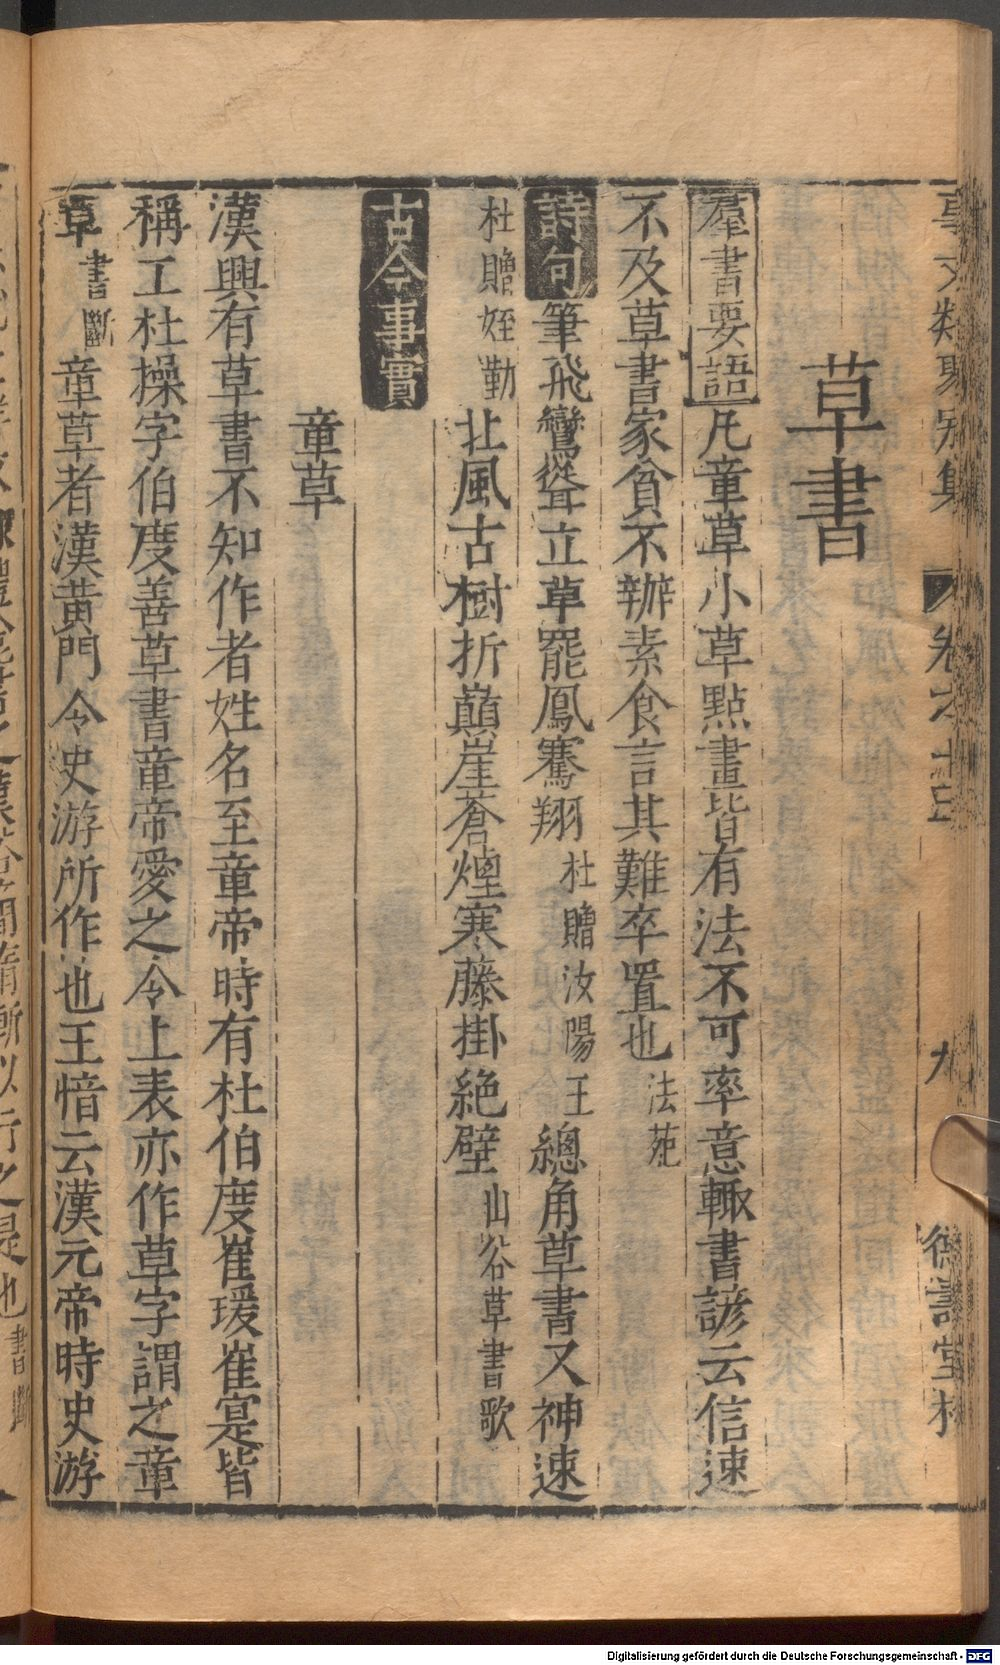 事文類聚別集
卷
九
草書
羣書要語凡章草小草點畫皆有法不可率意輙書諺云信速
不及草書家貧不辦素食言其難卒置也法苑
詩句筆飛鸞聳立草罷鳳騫翔杜贈汝陽王總角草書又神速
杜贈姪勤北風古樹折巔崖蒼煙寒藤掛絕壁山谷草書歌
古今事實
章草
漢興有草書不知作者姓名至章帝時有杜伯度崔瑗崔寔皆
稱工杜操字伯度善草書章帝愛之令上表亦作草字謂之章
草書斷章草者漢黃門令史游所作也王愔云漢元帝時史游
Digitalisierung gefördert durch die Deutsche Forschungsgemeinschaft - DFG